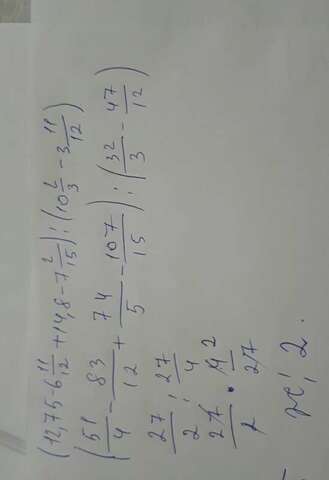 (12,75-6 11/12+14,8-7 2/15):(10 2/3-3 11/12)
(51/4-83/12+74/5-107/15):(32/3-47/12)
27/2:27/4
27/2·4/27 2
рс; 2.